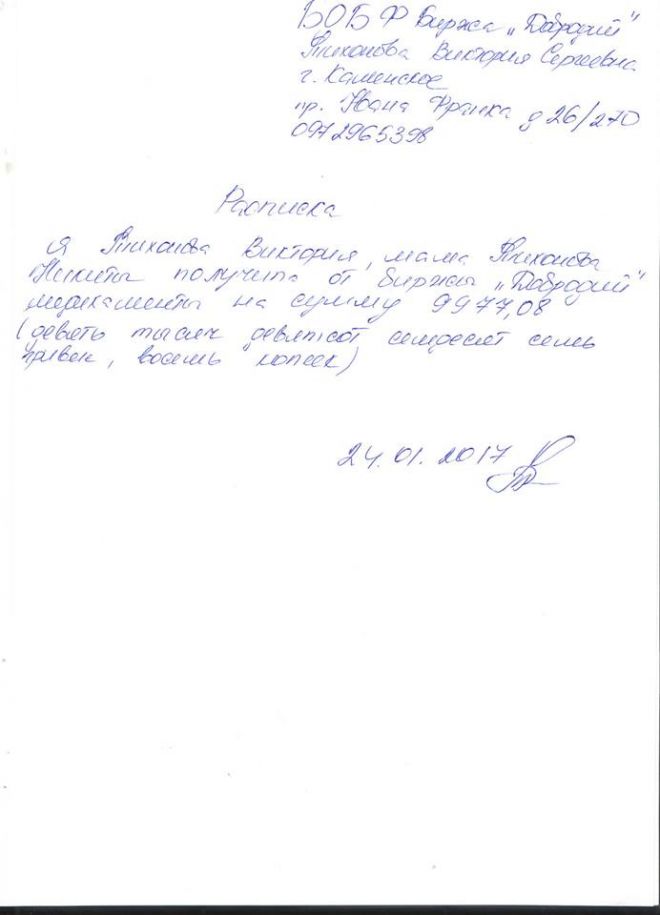 БОБФ Биржа „Добродий"
Тихонова Виктория Сергеевна
г. Каменское
пр. Ивана Франка д 26/270
0972965398
Расписка
Я Тихонова Виктория, мама Тихонова
Никиты получила от биржы „Добродий"
медикаменты на сумму 9977,08
(девять тысяч девятсот семдесят семь
гривен, восемь копеек)
24.01.2017